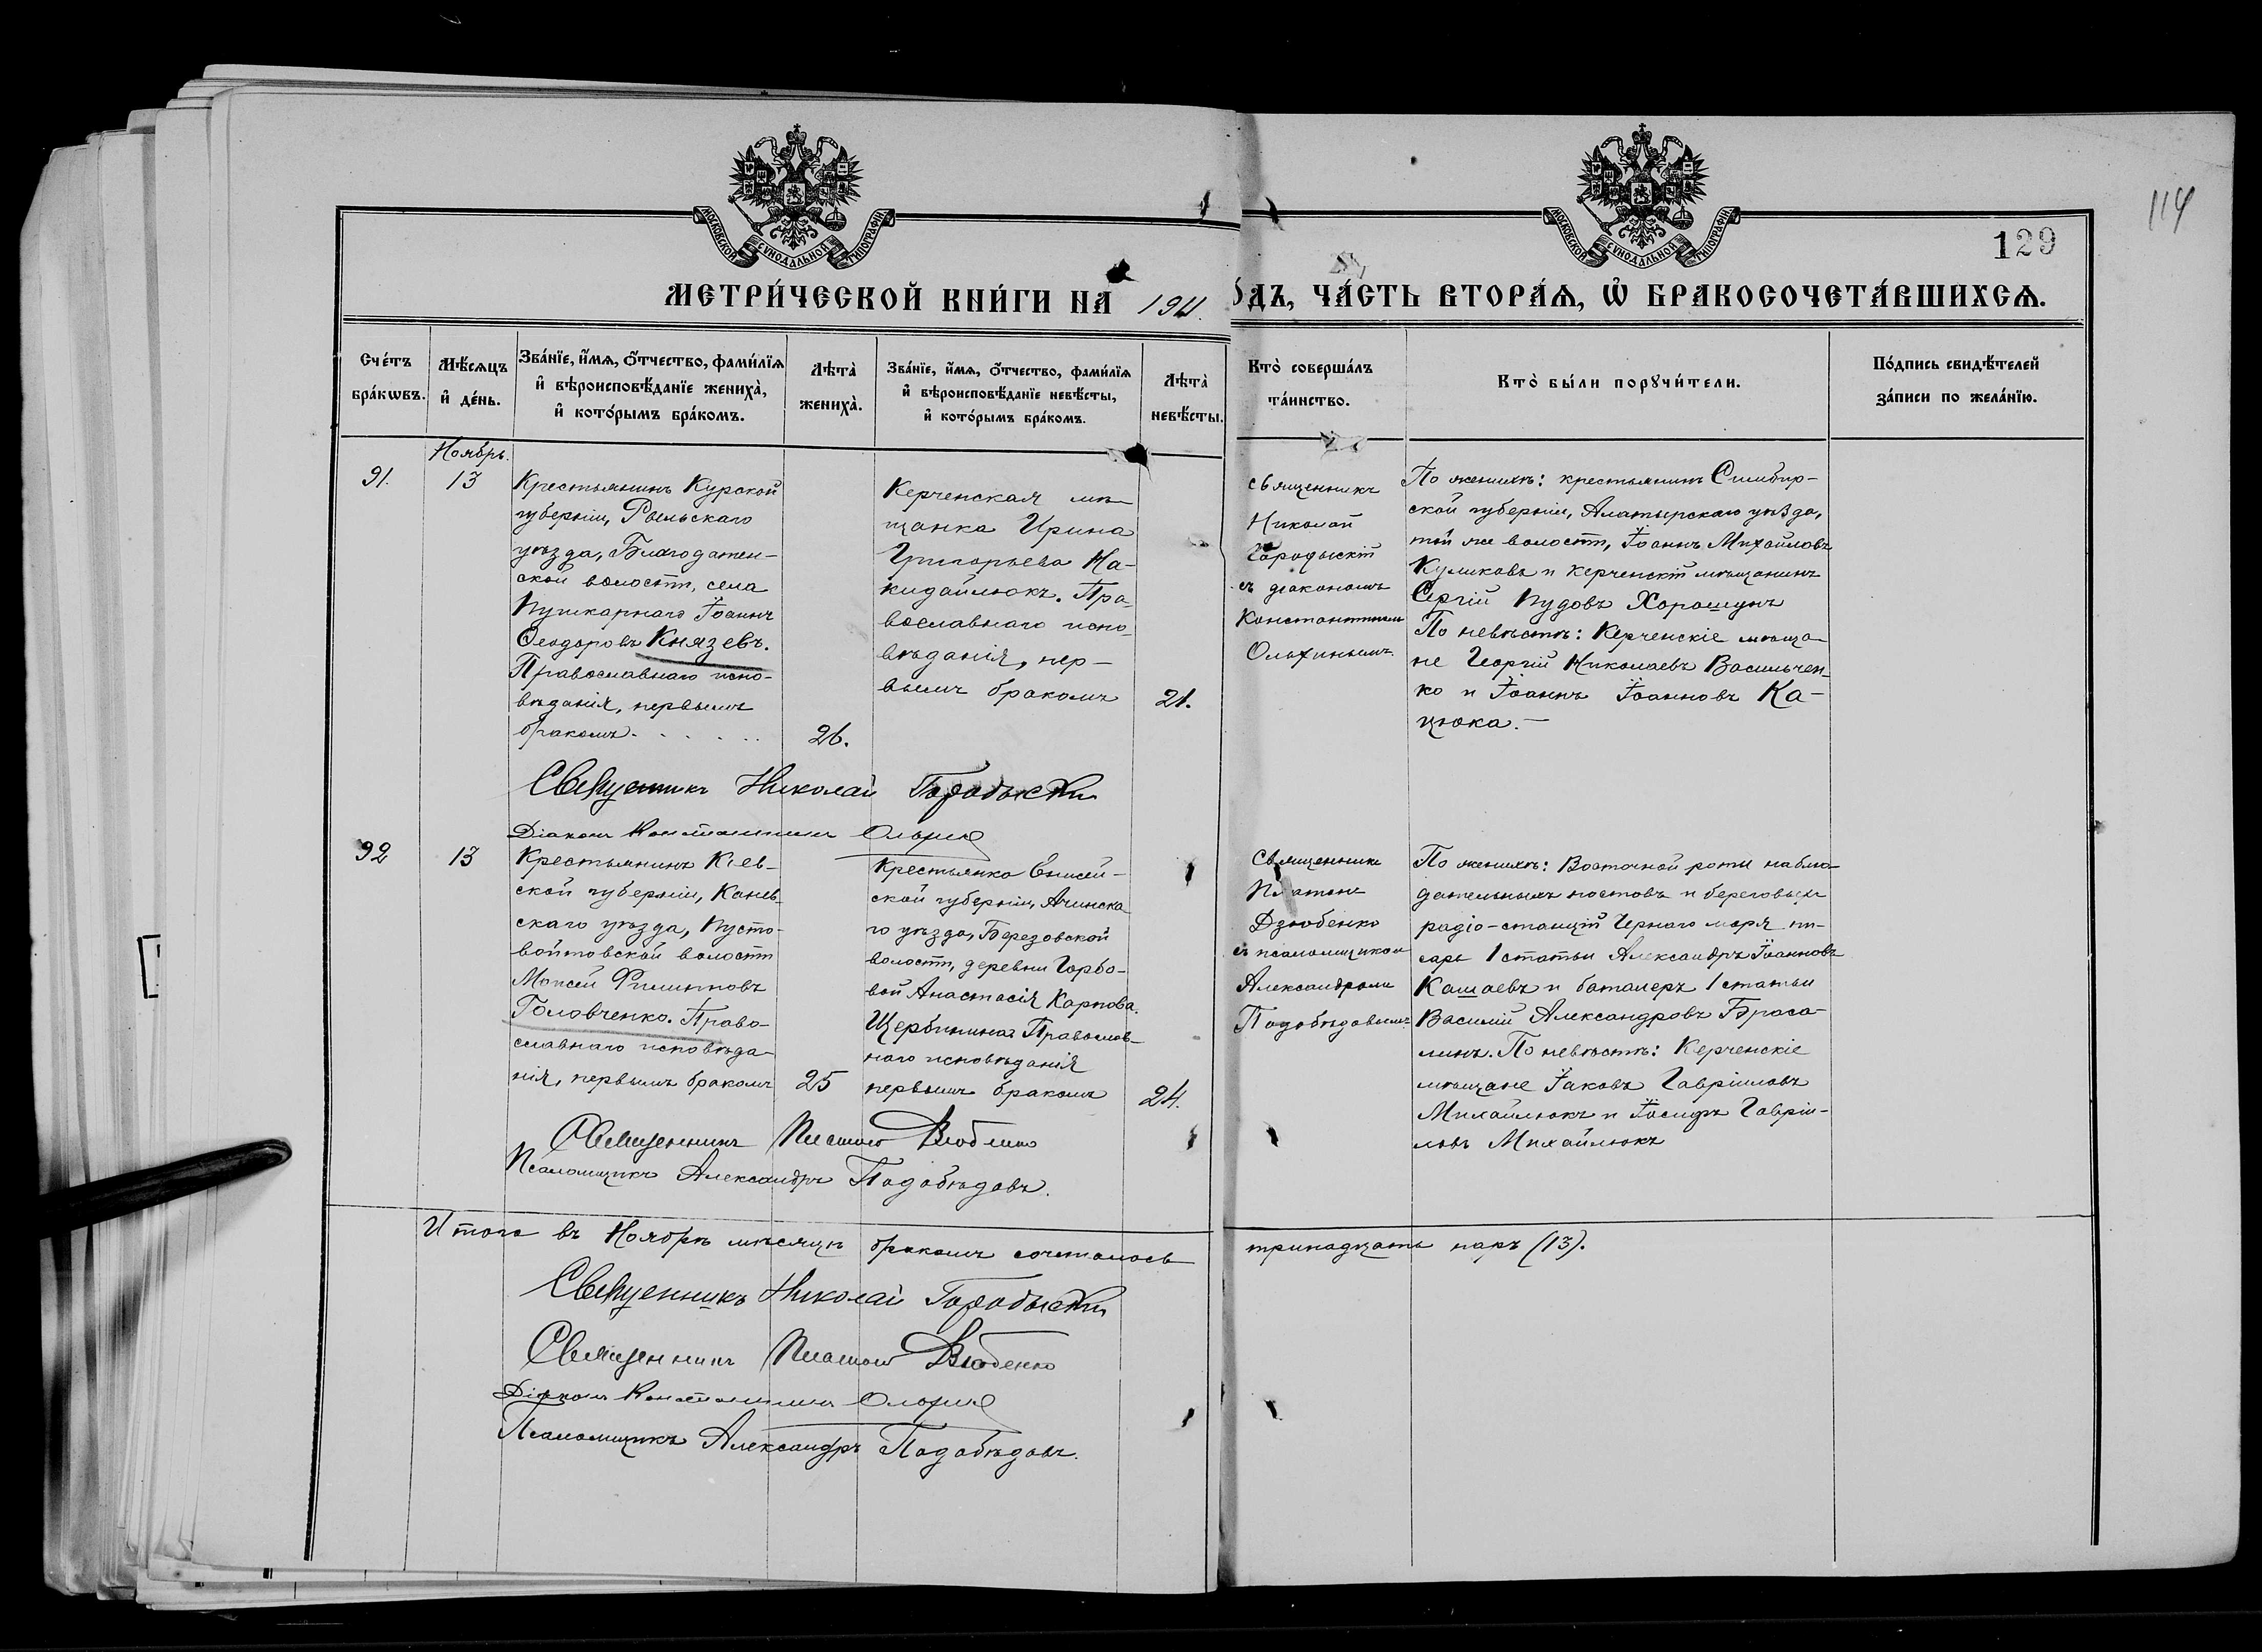 МОСКОВСКОЙ СѴНОДАЛЬНОЙ ТИПОГРАФІИ
МОСКОВСКОЙ СѴНОДАЛЬНОЙ ТИПОГРАФІИ
114
129
МЕТРИ́ЧЕСКОЙ КНИ́ГИ НА
ДЪ, ЧА́СТЬ ВТОРА́Ѧ, Ѿ БРАКОСОЧЕТА́ВШИХСѦ.
Сче́тъ
бра́кѡвъ.
Мѣ́сяцъ
и҆ де́нь.
Зва́нїе, и҆́мѧ, ѻ҆́тчество, фами́лїѧ
и҆ вѣроисповѣ́данїе жениха̀,
и҆ кото́рымъ бра́комъ.
Лѣта̀
жениха̀.
Зва́нїе, и҆́мѧ, ѻ҆́тчество, фами́лїѧ
и҆ вѣроисповѣ́данїе невѣ́сты,
и҆ кото́рымъ бра́комъ.
Лѣта̀
невѣ́сты.
Кто̀ соверша́лъ
та́инство.
Кто̀ бы́ли порꙋчи́тели.
По́дпись свидѣ́телей
за́писи по жела́нїю.
Ноябрь.
91.
13
Крестьянинъ Курской
губерніи, Рыльскаго
уѣзда, Благодатен-
ской волости, села
Пушкарнаго Іоаннъ
Ѳеодоровъ Князевъ.
Православнаго испо-
вѣданія, первымъ
бракомъ. . . . . .
26.
Керченская мѣ-
щанка Ирина
Григорьева На-
кидайлюкъ. Пра-
вославнаго испо-
вѣданія, пер-
вымъ бракомъ
21.
священникъ
Николай
Городыскій
съ діакономъ
Константиномъ
Ольхинымъ.
По женихѣ: крестьянинъ Симбир-
ской губерніи, Алатырскаго уѣзда,
той же волости, Іоаннъ Михайловъ
Куликовъ и керченскій мѣщанинъ
Сергій Пудовъ Хорошунъ
По невѣстѣ: Керченскіе мѣща-
не Георгій Николаевъ Васильчен-
ко и Іоаннъ Іоанновъ Ка-
цюка.—
Священникъ Николай Городыскій
Діаконъ Константинъ
92
13
Крестьянинъ Кіев-
ской губерніи, Канев-
скаго уѣзда, Пусто-
войтовской волости
Моисей Филипповъ
Головченко. Право-
славнаго исповѣда-
нія, первымъ бракомъ
25
Крестьянка Енисей-
ской губерніи, Ачинска-
го уѣзда, Березовской
волости, деревни Горбо-
вой Анастасія Карпова
Щербинина Православ-
наго исповѣданія
первымъ бракомъ
24.
Священникъ
Платонъ
Дзюбенко
съ псаломщикомъ
Александромъ
Подобѣдовымъ
По женихѣ: Восточной роты наблю-
дательныхъ постовъ и береговыхъ
радіо-станцій Чернаго моря пи-
сарь 1 статьи Александръ Іоанновъ
Кашаевъ и баталеръ 1 статьи
Василій Александровъ Браса-
линъ. По невѣстѣ: Керченскіе
мѣщане Іаковъ Гавріиловъ
Михайлюкъ и Іосифъ Гавріи-
ловъ Михайлюкъ
Священникъ Платонъ Дзюбенко
Псаломщикъ Александръ Подобѣдовъ.
Итого въ Ноябрѣ мѣсяцѣ бракомъ сочеталось тринадцать паръ (13).
Священникъ Николай Городыскій
Священникъ Платонъ Дзюбенко
Діаконъ Константинъ
Псаломщикъ Александръ Подобѣдовъ.